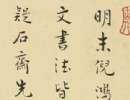 明末倪鴻
文書法皆
疑石齋先